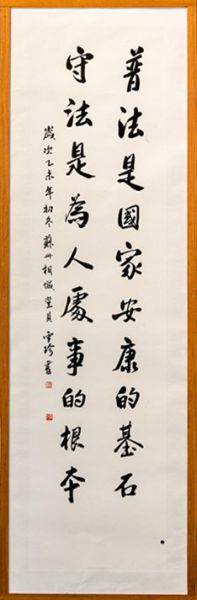 普法是國家安康的基石
守法是為人處事的根本
歲次乙未年初冬蘇州相城堂月雪珍書